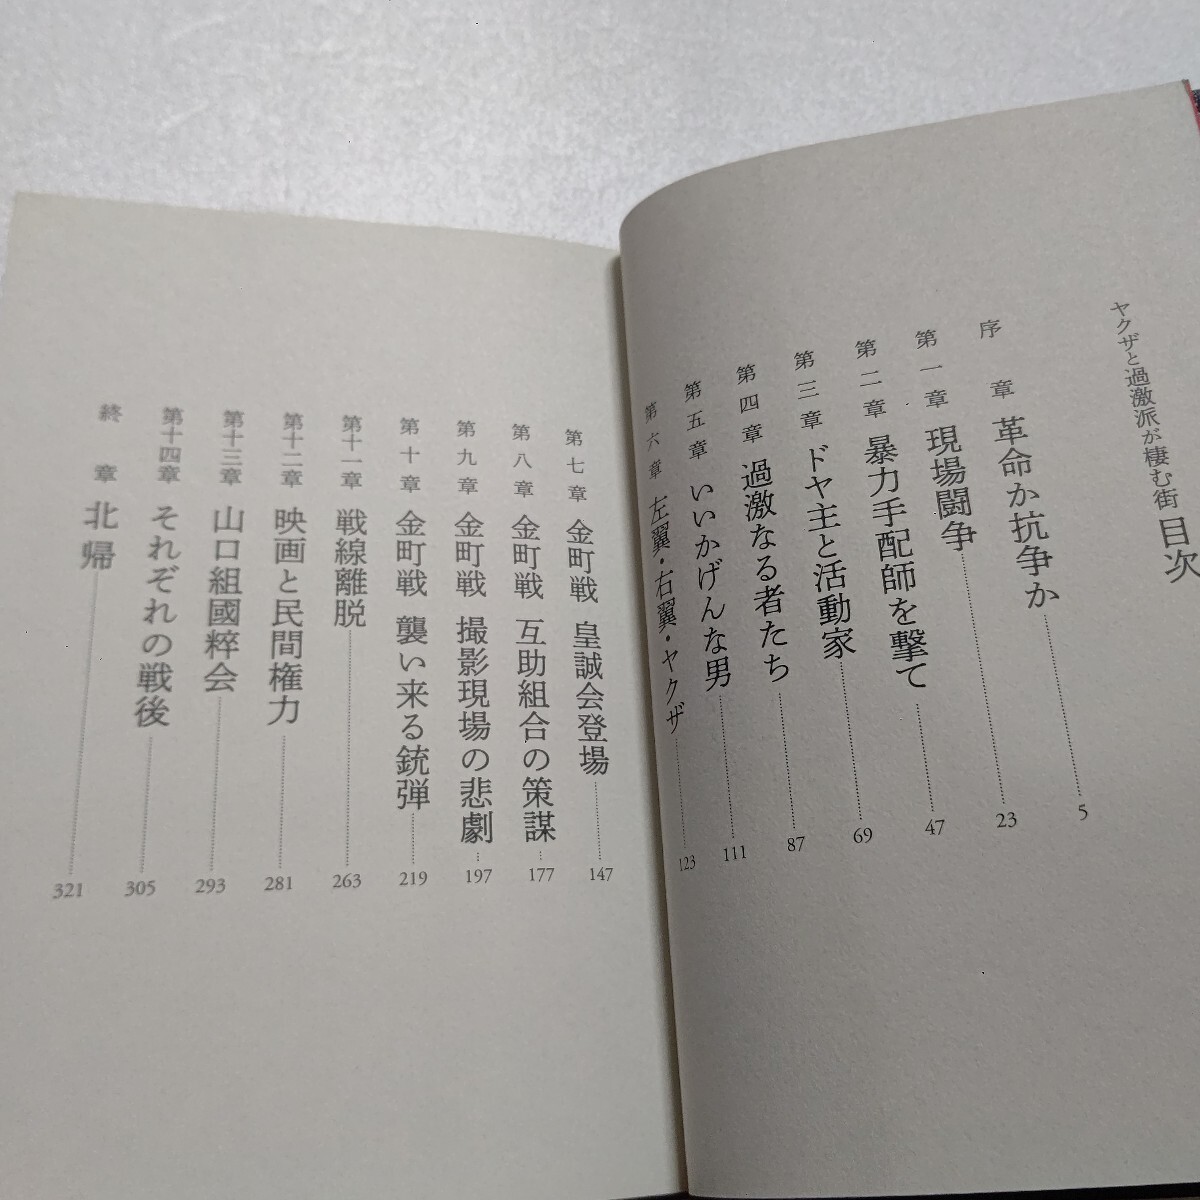 ヤクザと過激派が棲む街 目次
序章 革命か抗争か 5
第一章 現場闘争 23
第二章 暴力手配師を撃て 47
第三章 ドヤ主と活動家 69
第四章 過激なる者たち 87
第五章 いいかげんな男 111
第六章 左翼・右翼・ヤクザ 123
第七章 金町戦 皇誠会登場 147
第八章 金町戦 互助組合の策謀 177
第九章 金町戦 撮影現場の悲劇 197
第十章 金町戦 襲い来る銃弾 219
第十一章 戦線離脱 263
第十二章 映画と民間権力 281
第十三章 山口組國粹会 293
第十四章 それぞれの戦後 305
終章 北帰 321